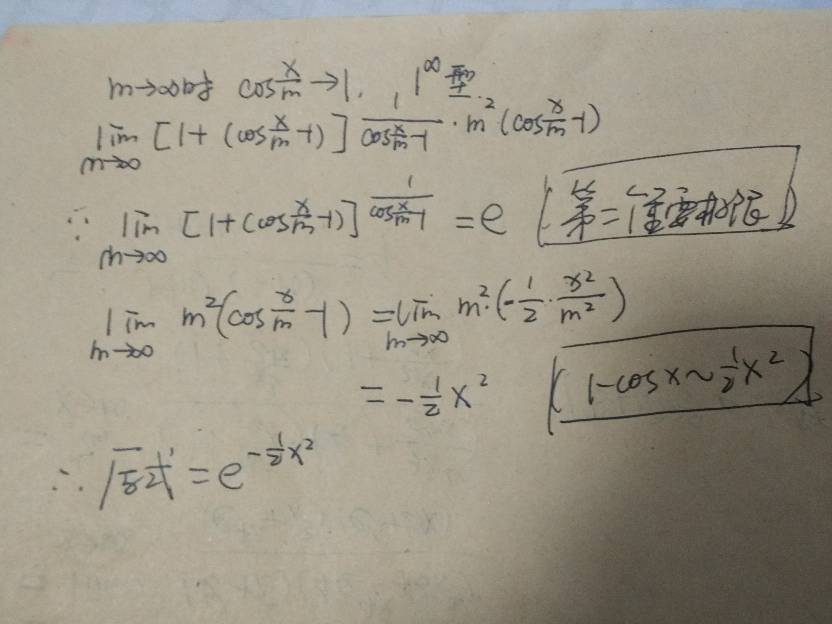 m→∞时 cos x/m →1. 1^∞型.
lim m→∞ [1+(cos x/m -1)]^{1/(cos x/m -1) · m²(cos x/m -1)}
∵ lim m→∞ [1+(cos x/m -1)]^{1/(cos x/m -1)} = e (第二个重要极限)
lim m→∞ m²(cos x/m -1) = lim m→∞ m²·(-1/2 · x²/m²)
= -1/2 x² (1-cosx~1/2 x²)
∴ 原式 = e^{-1/2 x²}